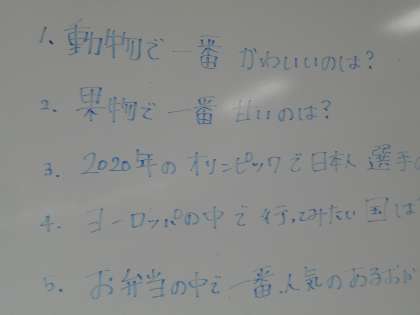 1. 動物で一番かわいいのは?
2. 果物で一番甘いのは?
3. 2020年のオリンピックで日本人選手の
4. ヨーロッパの中で行ってみたい国は
5. お弁当の中で一番人気のあるおか